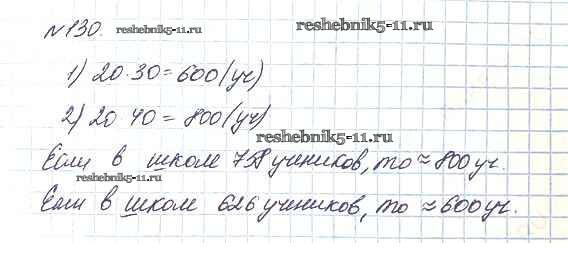 N130. reshebnik5-11.ru reshebnik5-11.ru
1) 20·30=600(уч)
2) 20 40=800(уч)
reshebnik5-11.ru
Если в школе 758 учеников, то ≈800уч.
reshebnik5-11.ru
Если в школе 626 учеников, то ≈600уч.